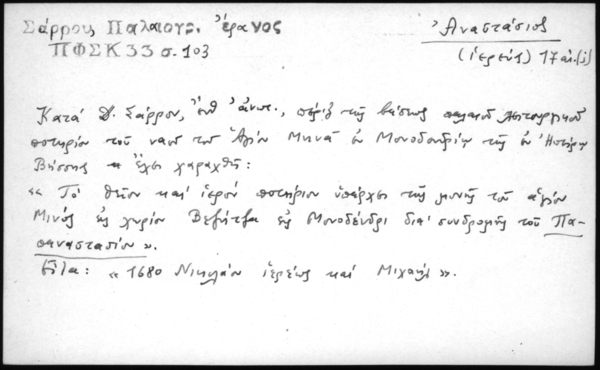 Σάρρου, Παλαιογρ. Ἔρανος
ΠΦΣΚ 33 σ. 103
Ἀναστάσιος
(ἱερεύς) 17 αἰ. (i)
Κατά Δ. Σάρρον, ἔνθ' ἀνωτ., πέριξ τῆς βάσεως παλαιοῦ λειτουργικοῦ
ποτηρίου τοῦ ναοῦ τοῦ Ἁγίου Μηνᾶ ἐν Μονοδενδρίῳ τῆς ἐν Ἠπείρῳ
Βίσσης ἔχει χαραχθῆ:
« Τό θεῖον καί ἱερόν ποτήριον ὑπάρχει τῆς μονῆς τοῦ ἁγίου
Μινός εἰς χωρίον Βεζήτζα εἰς Μονοδένδρι διά συνδρομῆς τοῦ Πα-
παναστασίου ».
Εἶτα: « 1680 Νικολάου ἱερέως καί Μιχαήλ ».